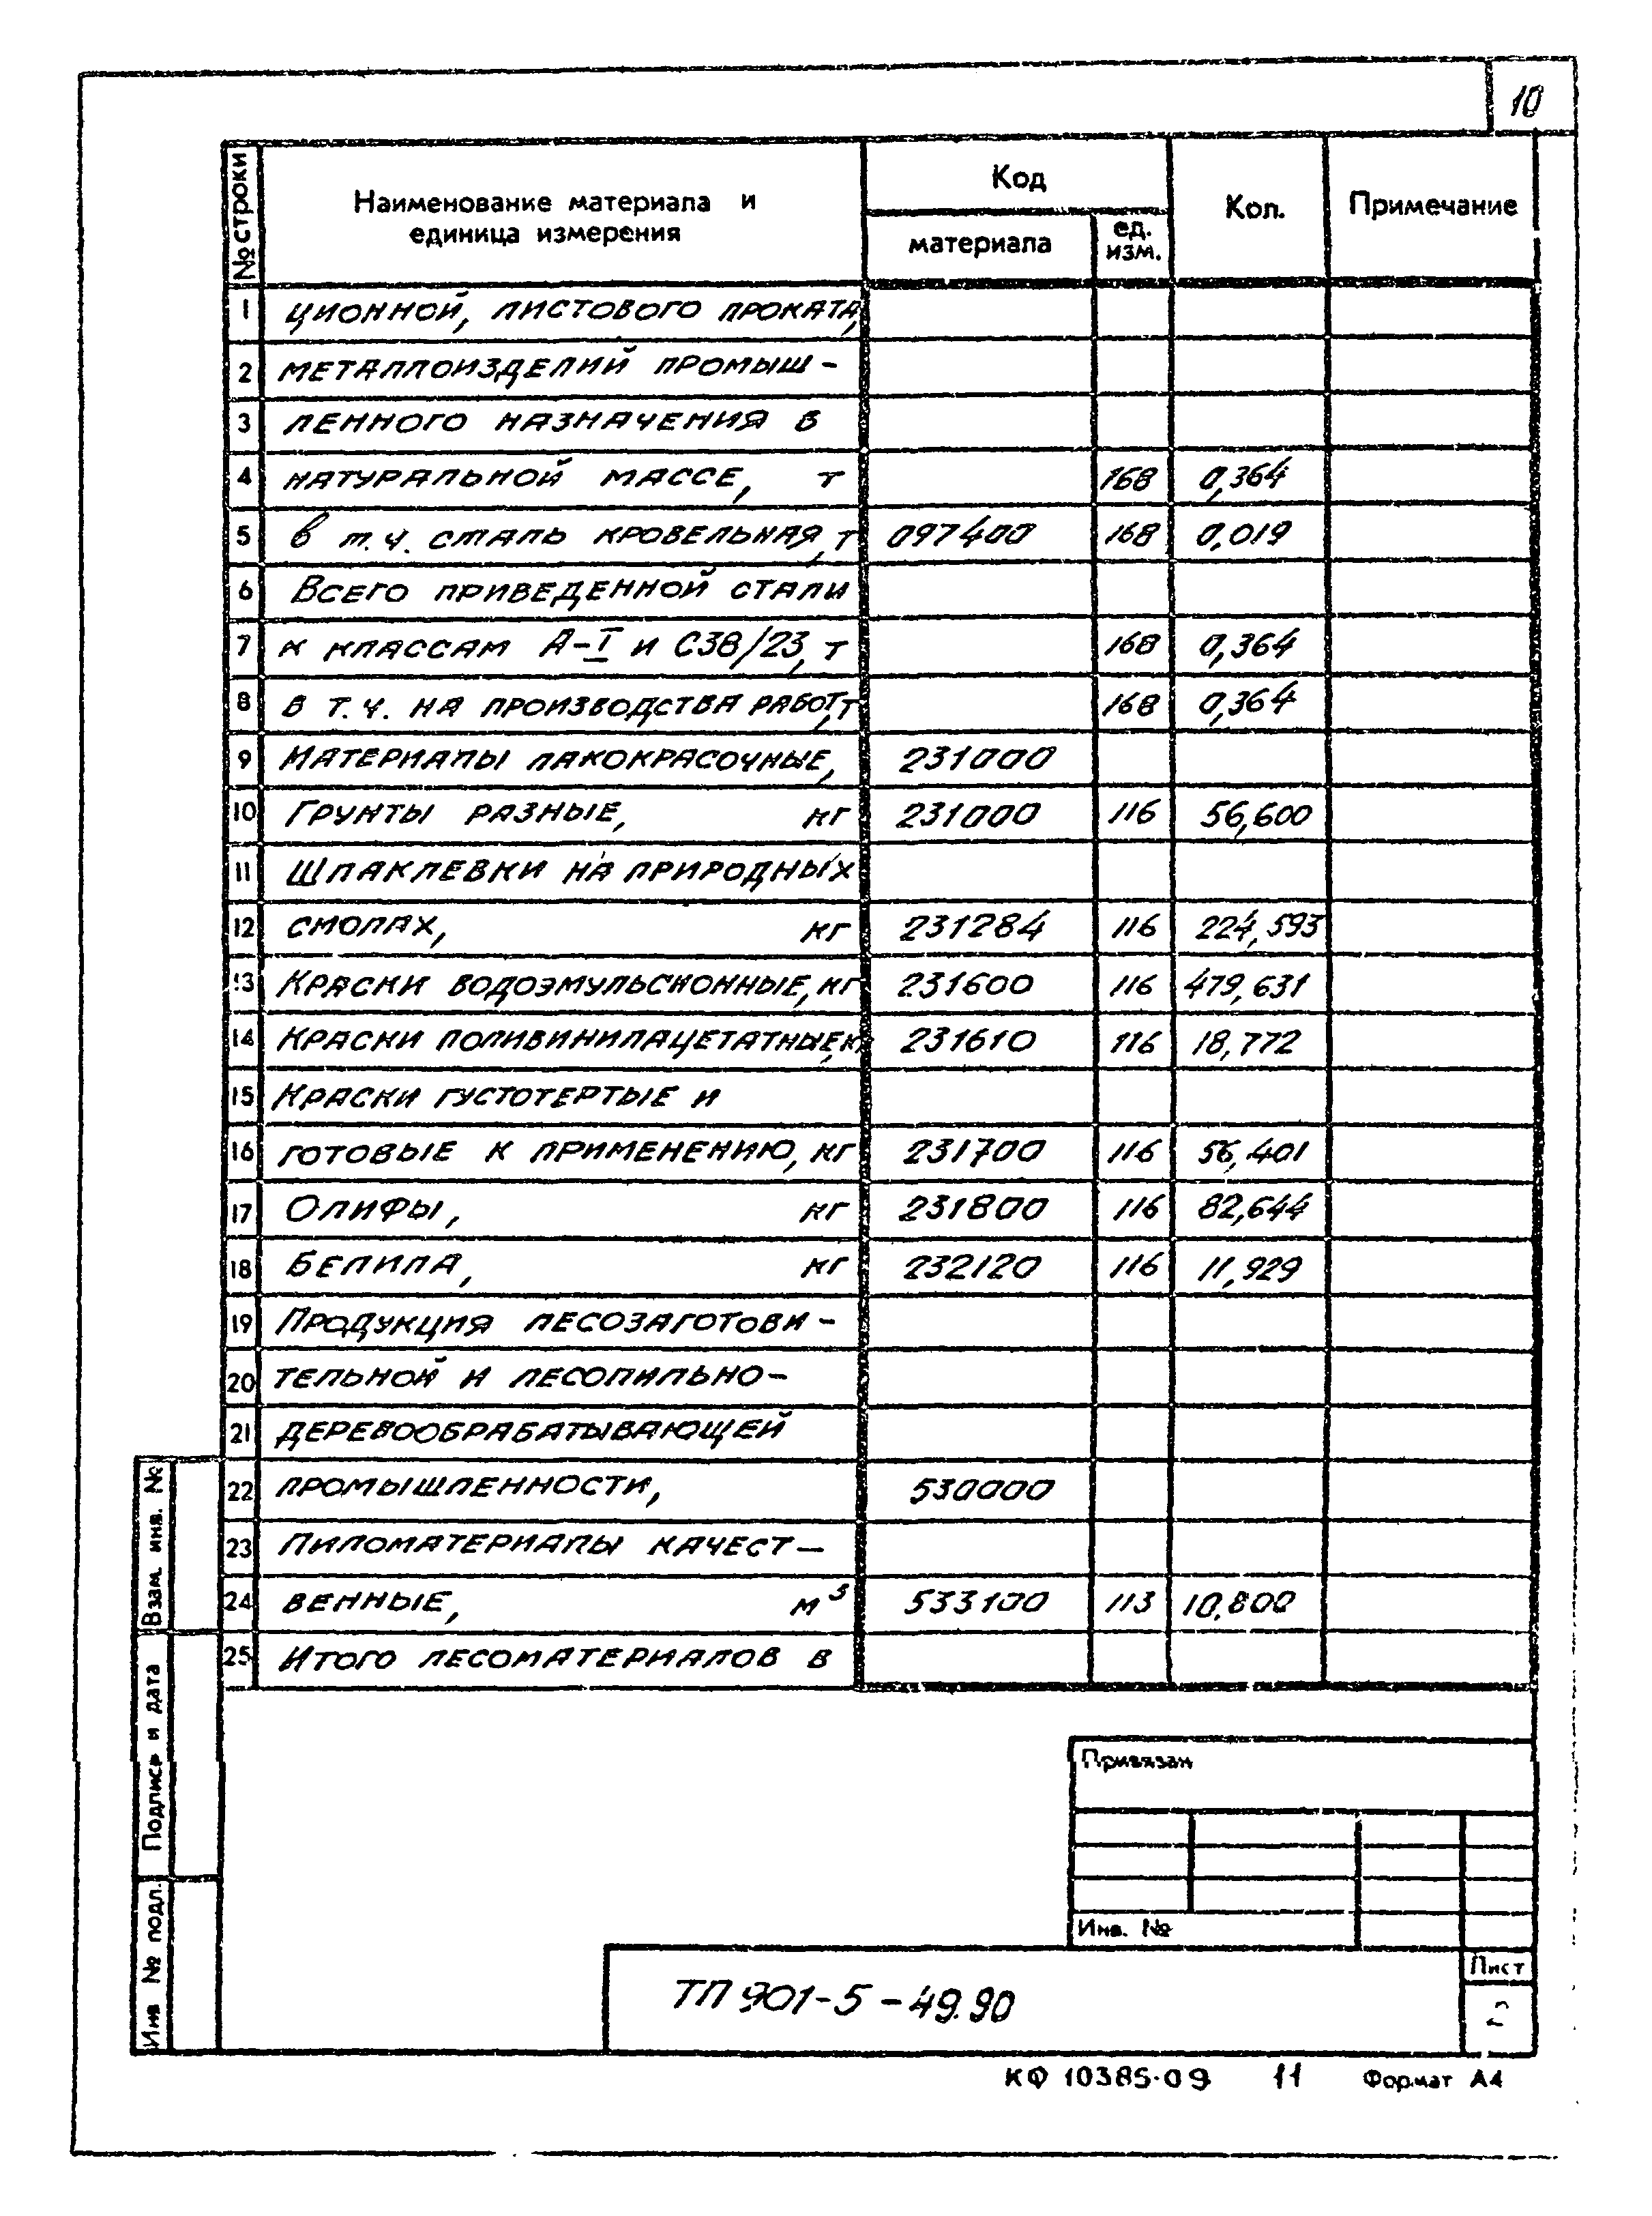 10
№ строки
Наименование материала и единица измерения
Код
материала
ед. изм.
Кол.
Примечание
1 ционной, листового проката,
2 металлоизделий промыш-
3 ленного назначения в
4 натуральной массе, т 168 0,364
5 в т.ч. сталь кровельная, т 097400 168 0,019
6 Всего приведенной стали
7 к классам А-I и С38/23, т 168 0,364
8 в т.ч. на производства работ, т 168 0,364
9 Материалы лакокрасочные, 231000
10 Грунты разные, кг 231000 116 56,600
11 Шпаклевки на природных
12 смолах, кг 231284 116 224,593
13 Краски водоэмульсионные, кг 231600 116 479,631
14 Краски поливинилацетатные, кг 231610 116 18,772
15 Краски густотертые и
16 готовые к применению, кг 231700 116 56,401
17 Олифы, кг 231800 116 82,644
18 Белила, кг 232120 116 11,929
19 Продукция лесозаготови-
20 тельной и лесопильно-
21 деревообрабатывающей
22 промышленности, 530000
23 Пиломатериалы качест-
24 венные, м³ 533100 113 10,800
25 Итого лесоматериалов в
Взам. инв. №
Подпись и дата
Инв № подл.
Привязан
Инв. №
ТП 901-5-49.90
Лист
2
КФ 10385-09 11 Формат А4